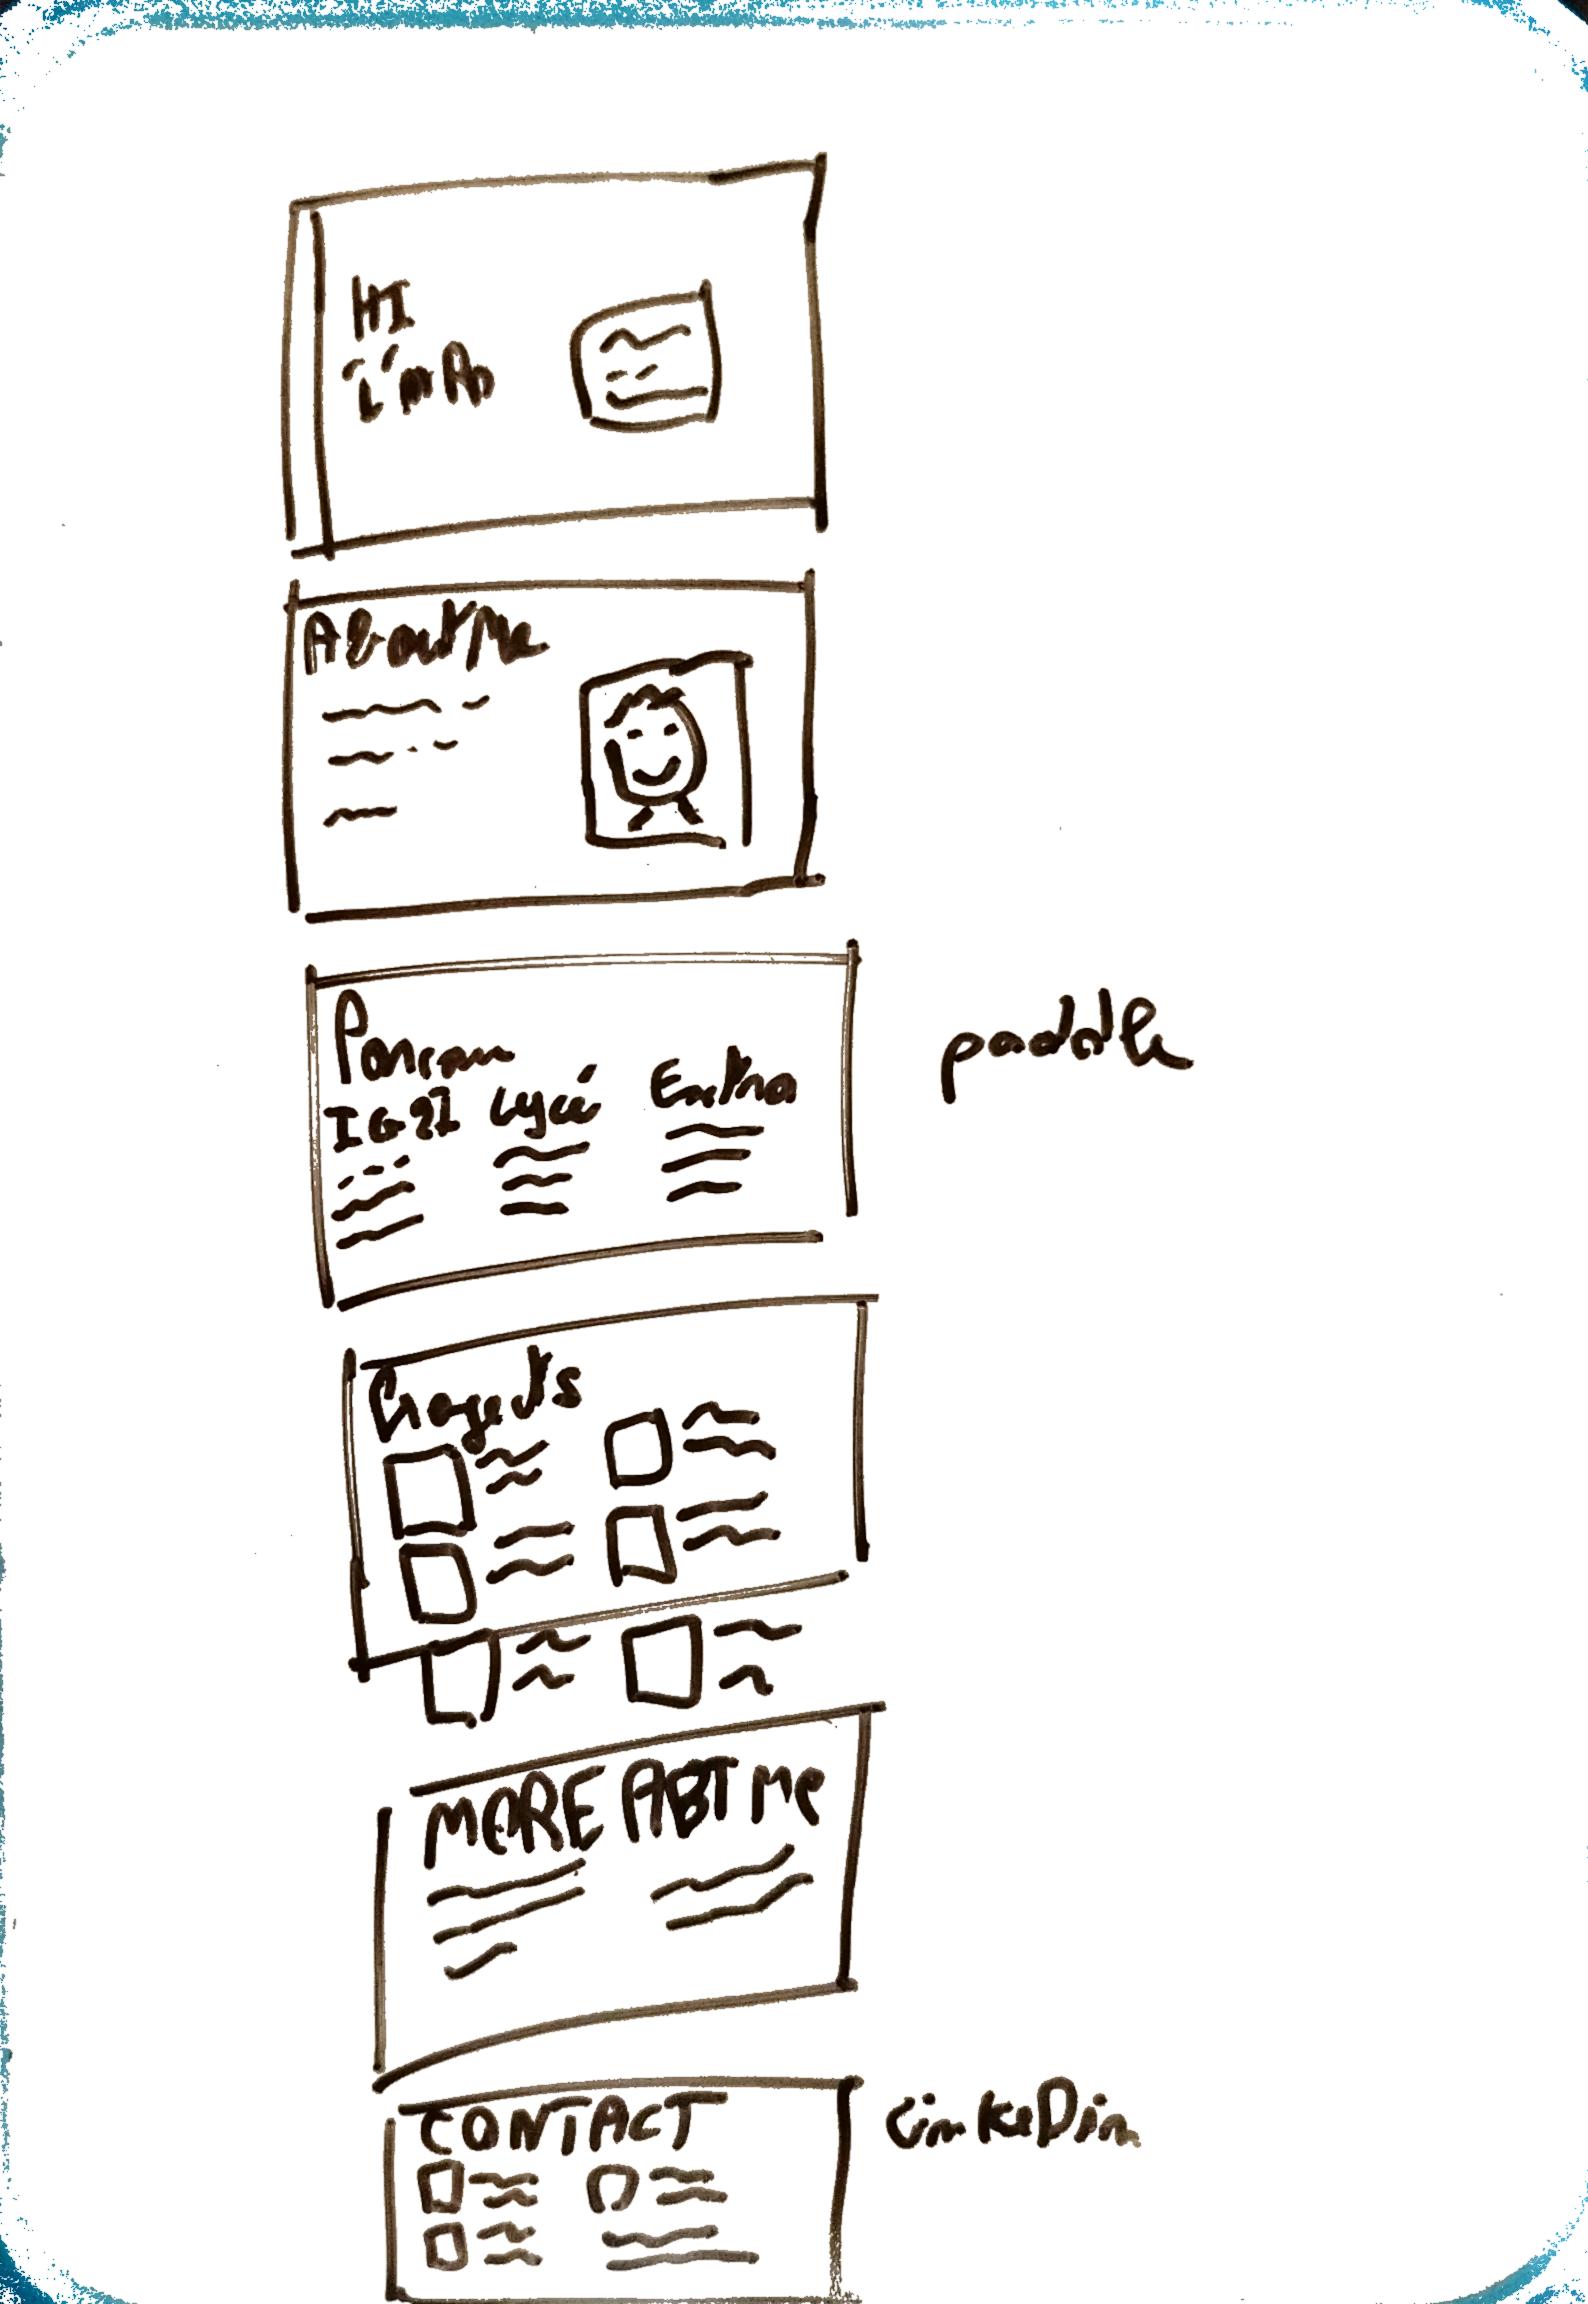 HI
i'm An
About Me
Parcours
paddle
IG2I Lycé Extra
Projects
MORE ABT Me
CONTACT
LinkeDin